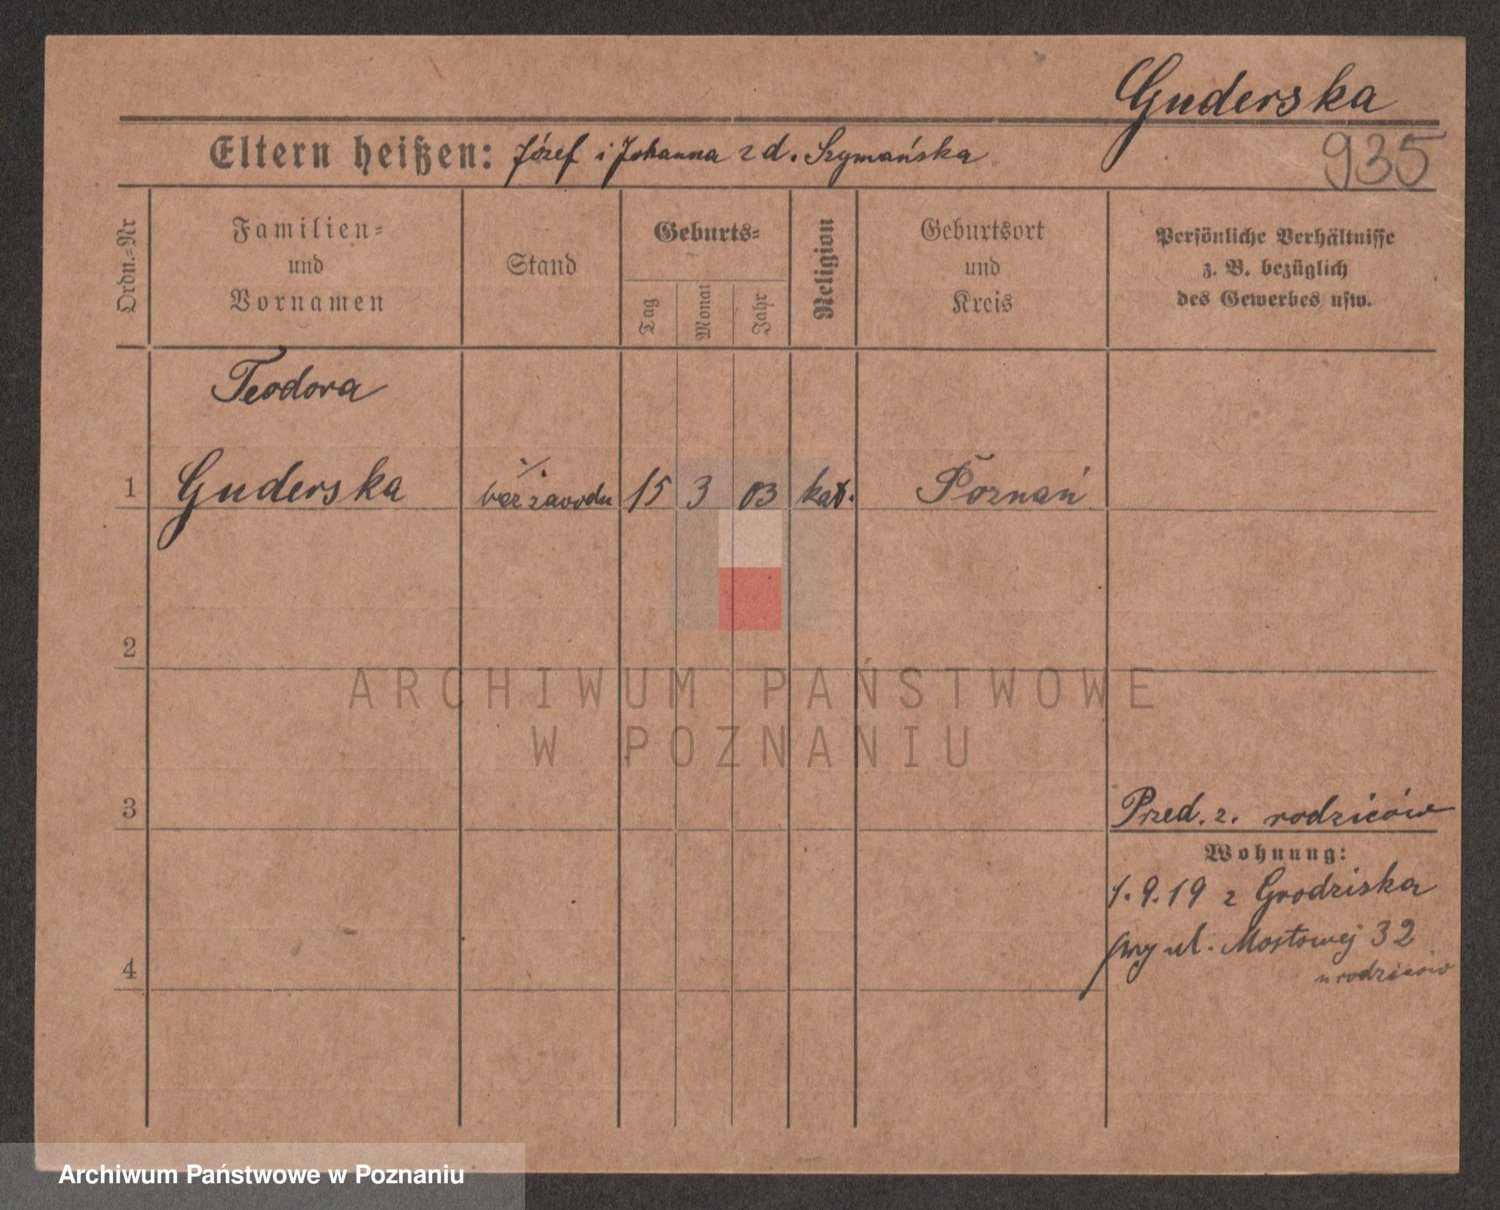 Guderska
935
Eltern heißen: Józef i Johanna z d. Szymańska
Ordn.-Nr
Familien-
und
Vornamen
Stand
Geburts-
Tag
Monat
Jahr
Religion
Geburtsort
und
Kreis
Persönliche Verhältnisse
z. B. bezüglich
des Gewerbes usw.
Teodora
1 Guderska bez zawodu 15 3 03 kat. Poznań
2
ARCHIWUM PAŃSTWOWE
W POZNANIU
3
Przed. z. rodziców
Wohnung:
1.9.19 z Grodziska
przy ul. Mostowej 32
u rodziców
4
Archiwum Państwowe w Poznaniu